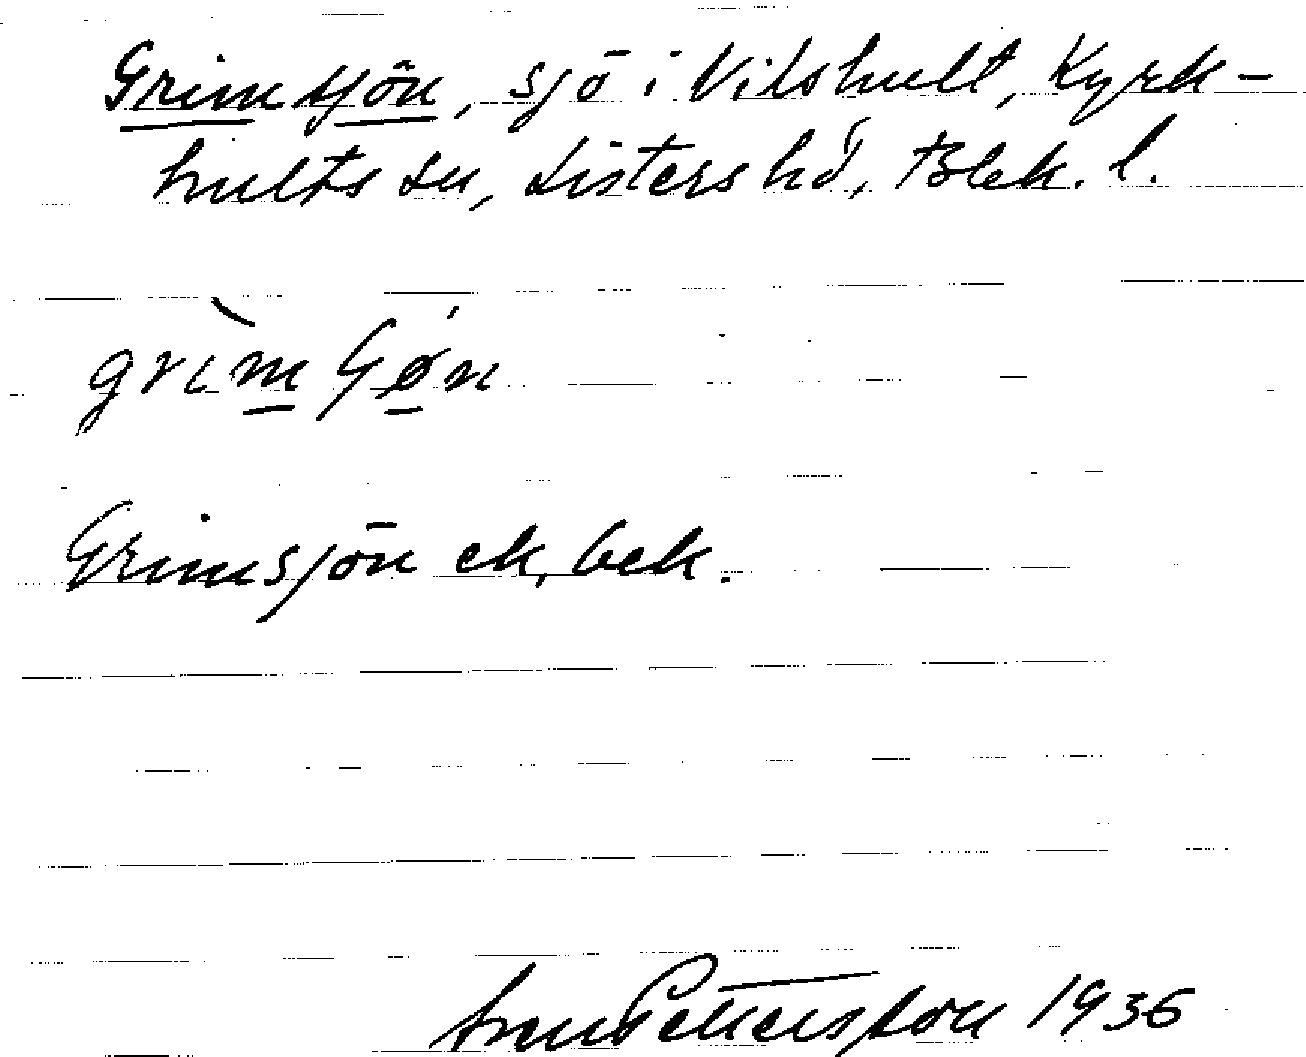 Grimsjön, sjö i Vilshult, Kyrk-
hults sn, Listers hd, Blek. l.
Grimsjön ek, bek.
Pettersson 1936